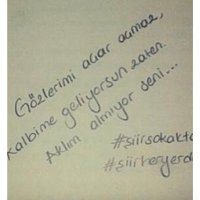 Gözlerimi açar açmaz,
Kalbime geliyorsun zaten.
Aklım almıyor seni...
#şiirsokakta
#şiirheryerde